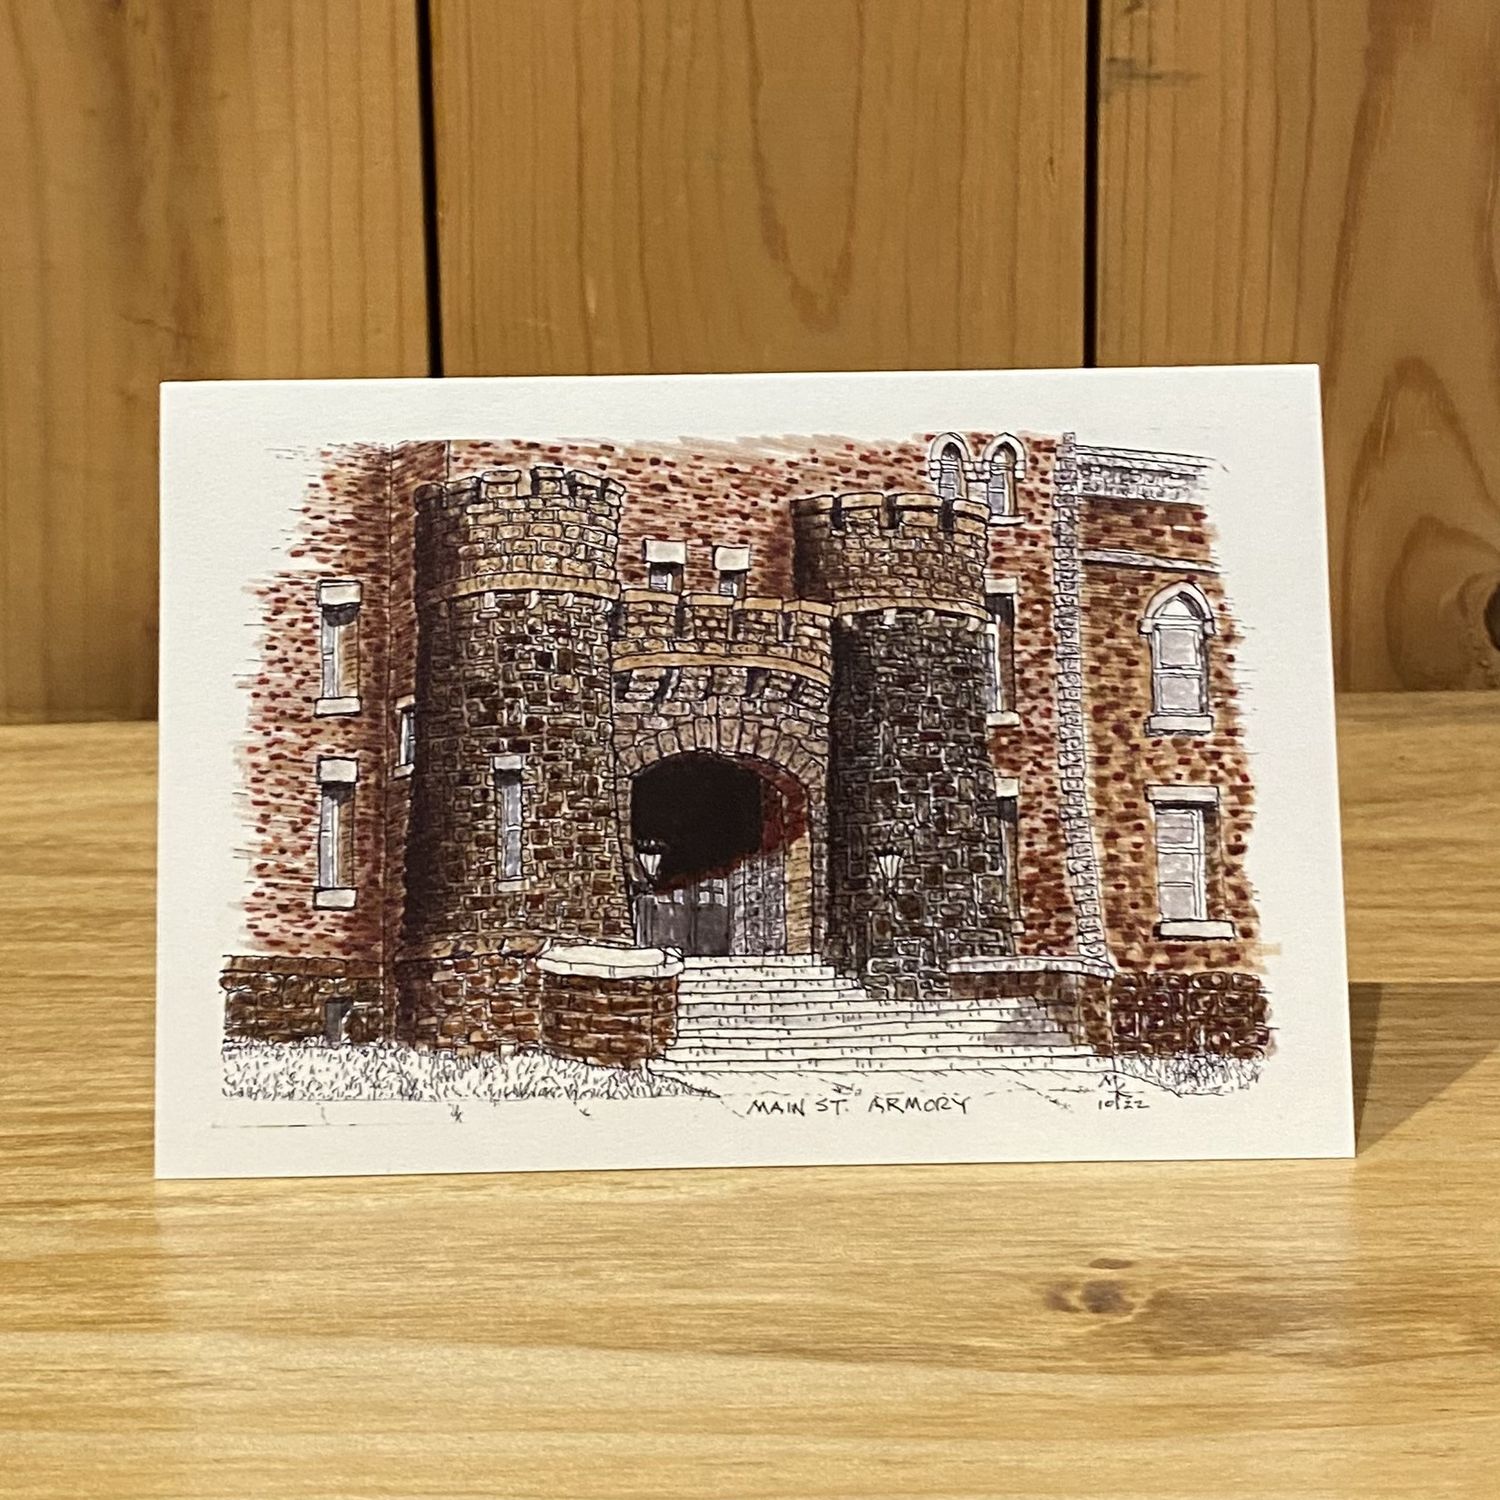 MAIN ST. ARMORY
10/22